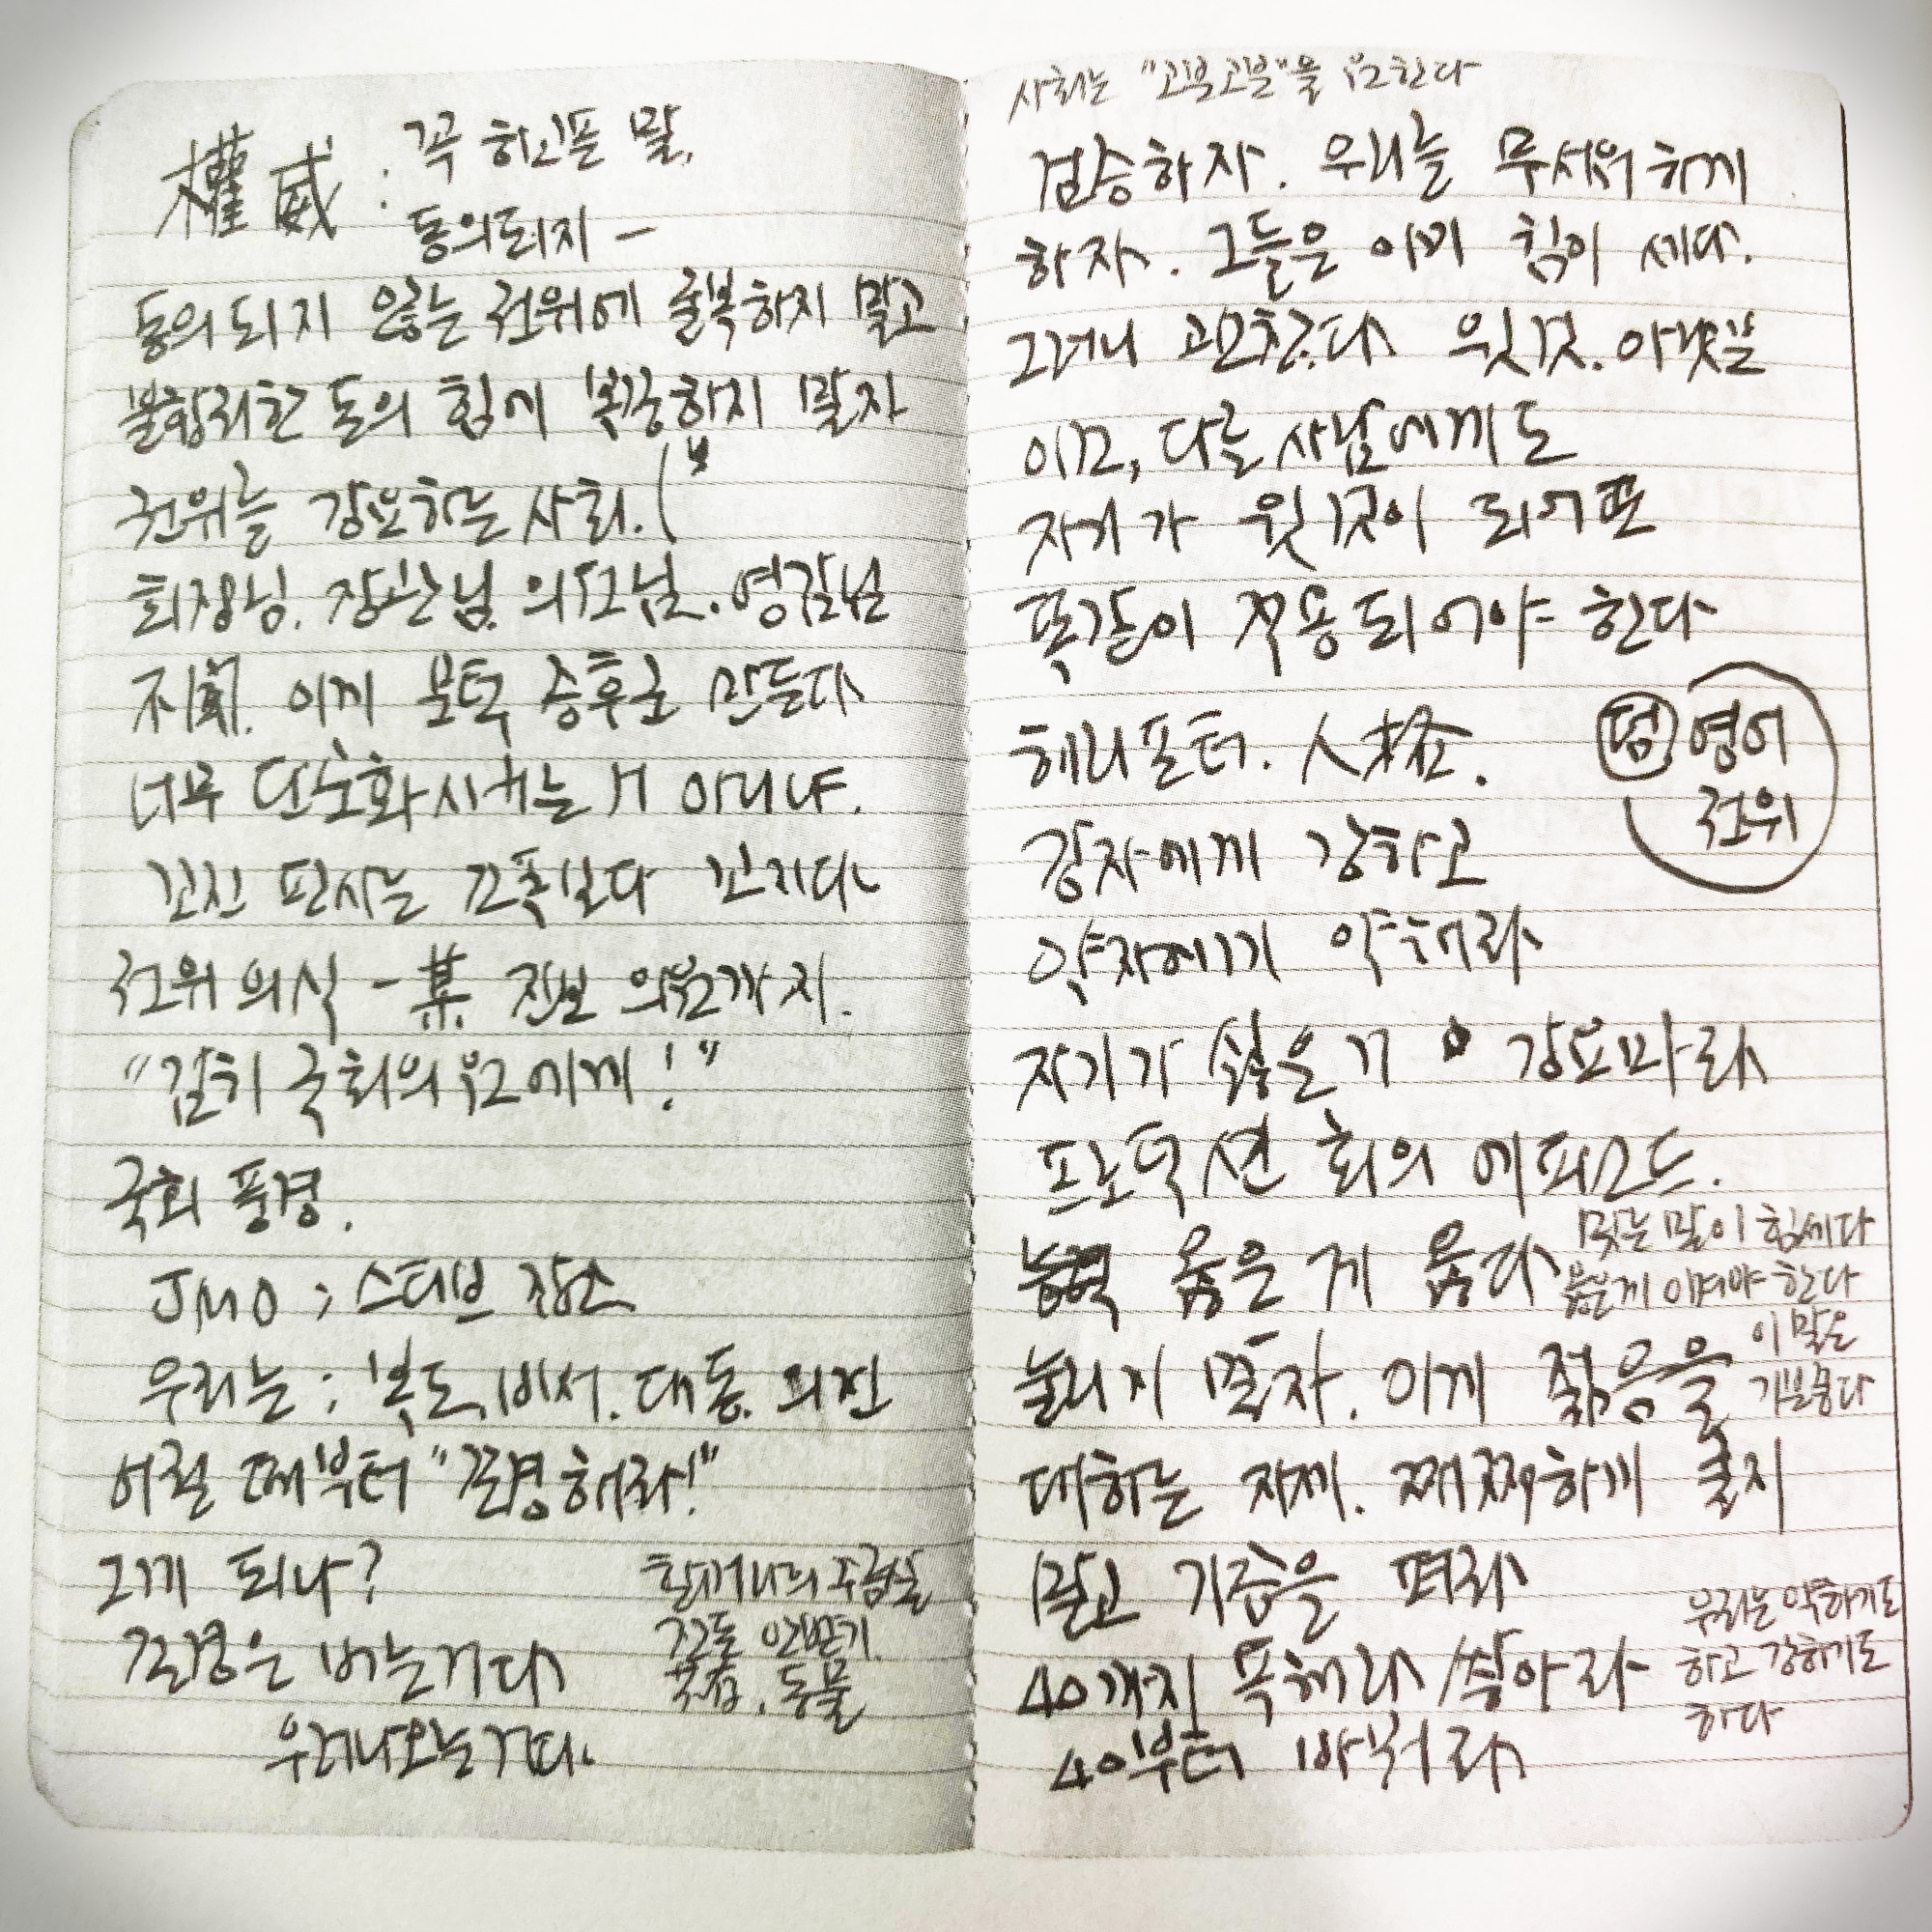 權威 : 꼭 하고픈 말,
동의되지 -
동의되지 않는 권위에 굴복하지 말고
불합리한 돈의 힘에 복종하지 말자
권위를 강요하는 사회.
회장님. 장관님. 의원님. 영감님
이게 불턱 증후군 만든다
너무 단순화시키는 거 아니냐.
꼬진 판사는 조폭보다 꼬지다
권위의식 - 某 진보 의원까지.
"감히 국회의원에게!"
국회 풍경.
JMO ; 스티브 장소
우리는 ; 복도, 비서. 대동. 의전
어릴 때부터 "존경해라!"
그게 되나?
존경은 버는거다
우러나오는거다.
할머니의 주름살
동물
사회는 "고분고분"을 원한다
겸손하자. 우리를 무서워하게
하자. 그들은 이미 힘이 세다.
그러니 괜찮다 윗것. 아랫것
이고, 다른 사람에게도
자기가 윗것이 되어 또
똑같이 적용되어야 한다
해리포터. 人
강자에게 강하고
약자에게 약해라
덤 영어
권위
자기가 싫은거 강요마라
프로덕션 회의 에피소드.
옳은 게 옳다
맞는 말이 힘세다
옳은게 이겨야 한다
눌리지 말자. 이게 젊음을
이 말은
기분좋다
대하는 자세. 쩨쩨하게 굴지
말고 기준을 펴라
40까지 독해라 쌓아라
40부터 바꿔라
우리는 약하기도
하고 강하기도
하다